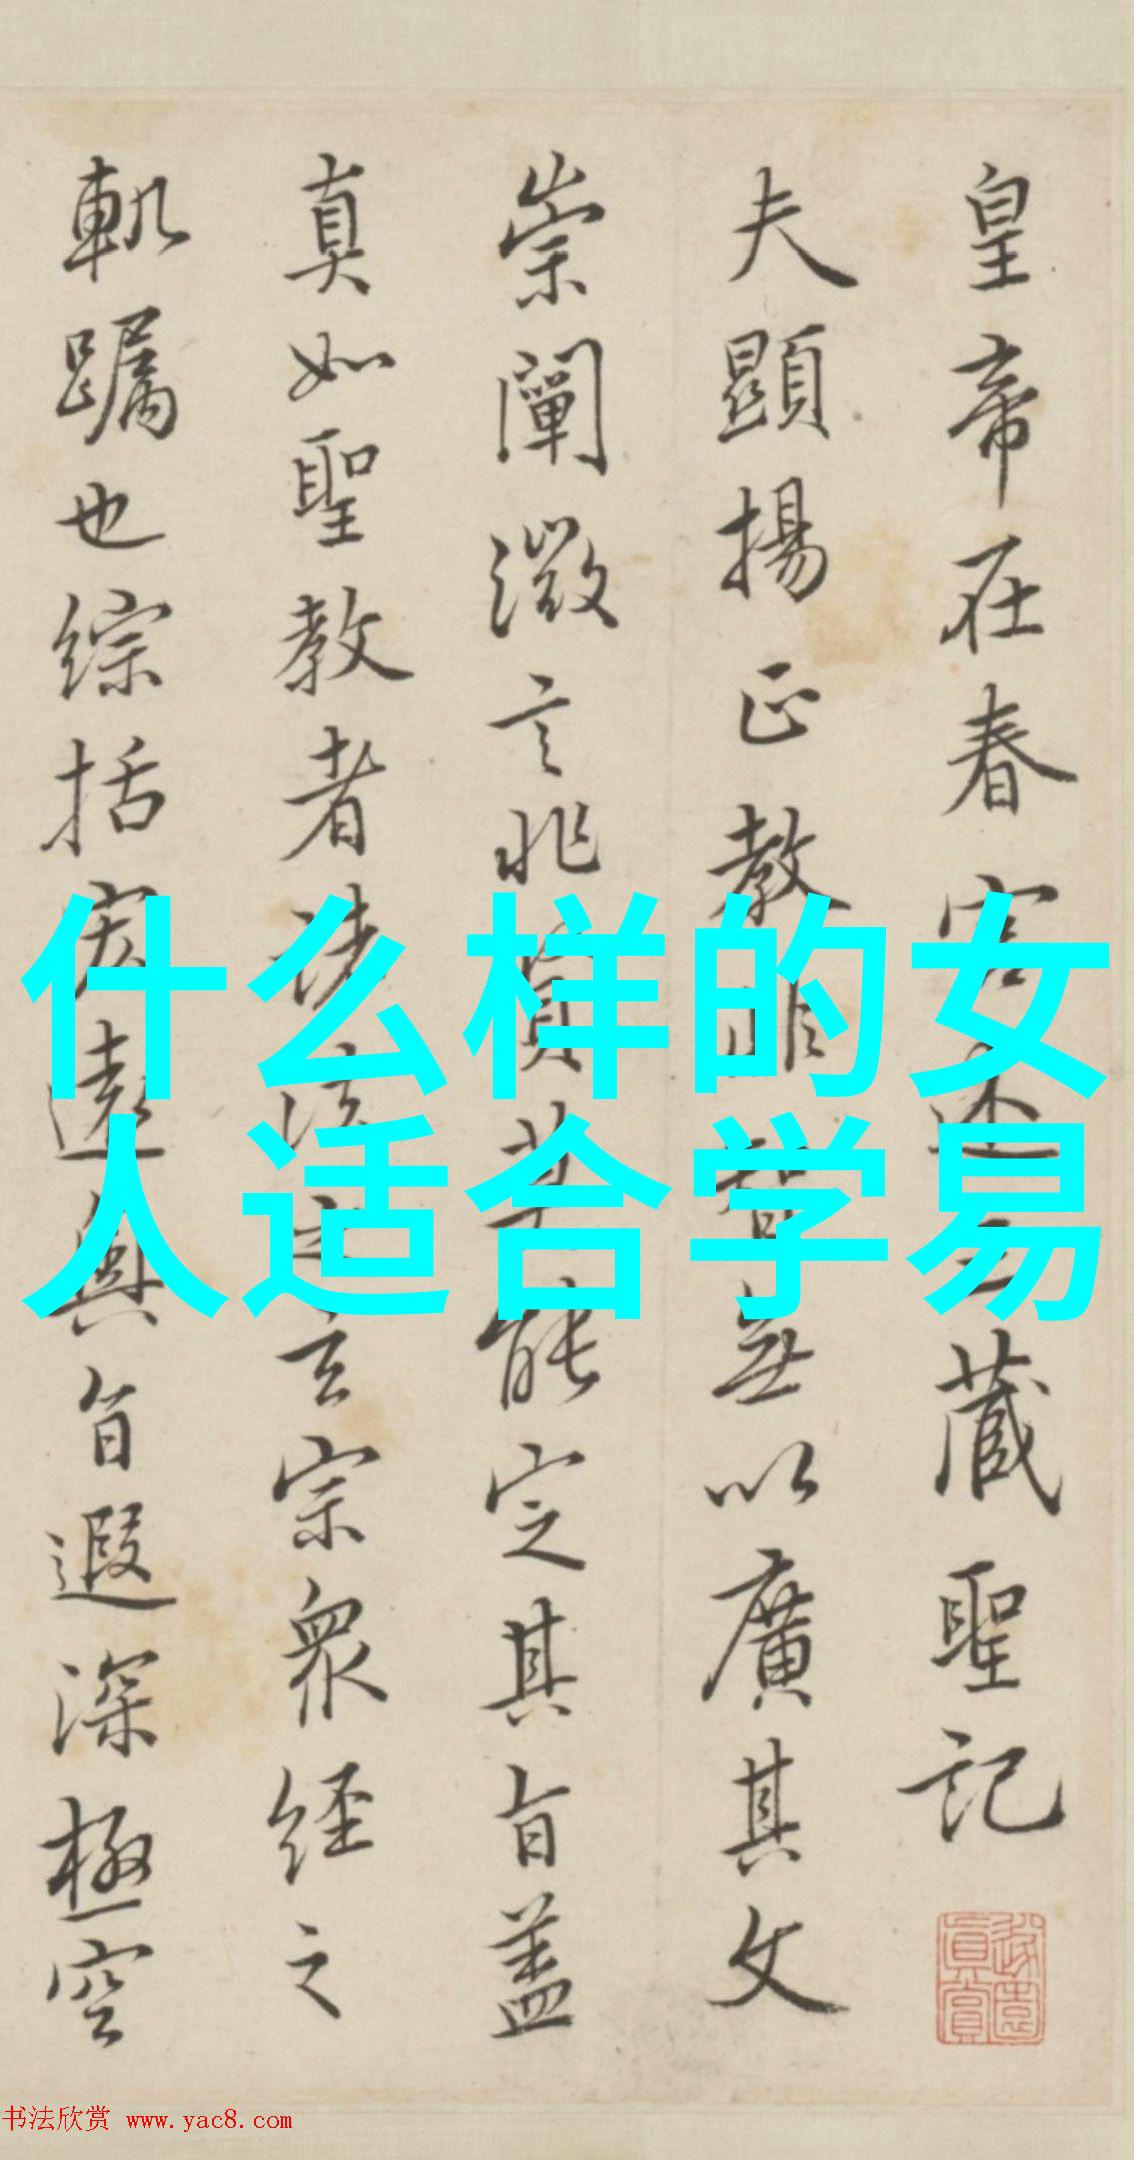 皇帝在春宮述三藏聖記
夫顯揚正教非智無以廣其文
崇闡微言非賢莫能定其旨蓋
真如聖教者諸法之玄宗衆經之
軌躅也綜括宏遠奧旨遐深極空
什么样的女
人适合学易
书法欣赏 www.yac8.com